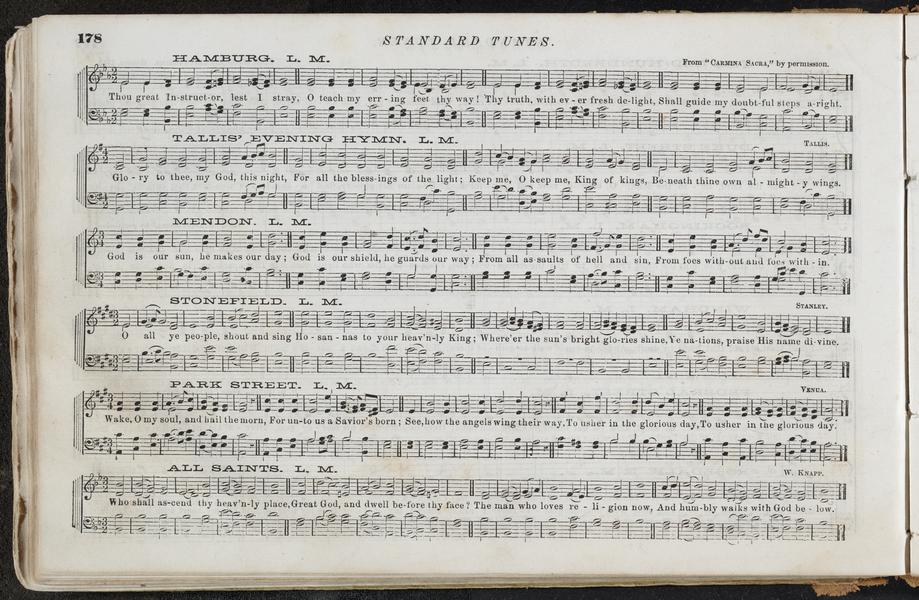 178
STANDARD TUNES.
HAMBURG. L. M.
From "CARMINA SACRA," by permission.
Thou great In-struct-or, lest I stray, O teach my err - ing feet thy way! Thy truth, with ev - er fresh de-light, Shall guide my doubt-ful steps a-right.
TALLIS' EVENING HYMN. L. M.
TALLIS.
Glo - ry to thee, my God, this night, For all the bless-ings of the light; Keep me, O keep me, King of kings, Be-neath thine own al - might - y wings.
MENDON. L. M.
God is our sun, he makes our day; God is our shield, he guards our way; From all as-saults of hell and sin, From foes with-out and foes with - in.
STONEFIELD. L. M.
STANLEY.
O all ye peo-ple, shout and sing Ho - san - nas to your heav'n-ly King; Where'er the sun's bright glo-ries shine, Ye na-tions, praise His name di-vine.
PARK STREET. L. M.
VENUA.
Wake, O my soul, and hail the morn, For un-to us a Savior's born; See, how the angels wing their way, To usher in the glorious day, To usher in the glorious day.
ALL SAINTS. L. M.
W. KNAPP.
Who shall as-cend thy heav'n-ly place, Great God, and dwell be-fore thy face? The man who loves re - li - gion now, And hum-bly walks with God be - low.